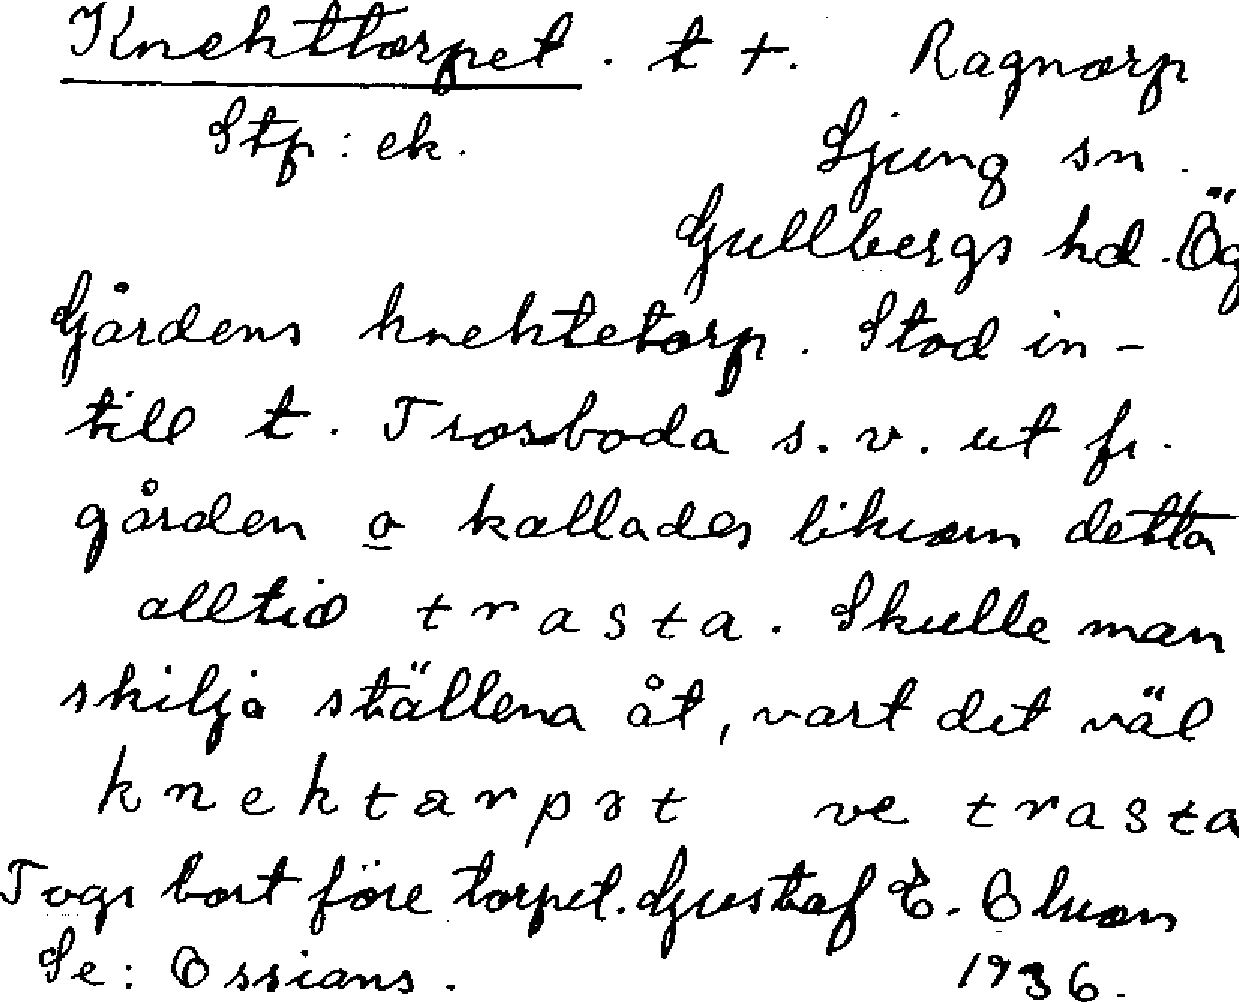 Knekttorpet. t +. Ragnorp
Stp: ek. Ljung sn.
Gullbergs hd. Ög
Gårdens knektetorp. Stod in-
till t. Trosboda s. v. ut fr.
gården o kallades liksom detta
alltid trasta. Skulle man
skilja ställena åt, vart det väl
knektarpət ve trasta
Togs bort före torpet. Gustaf E. Olsson
Se: Ossians. 1936.